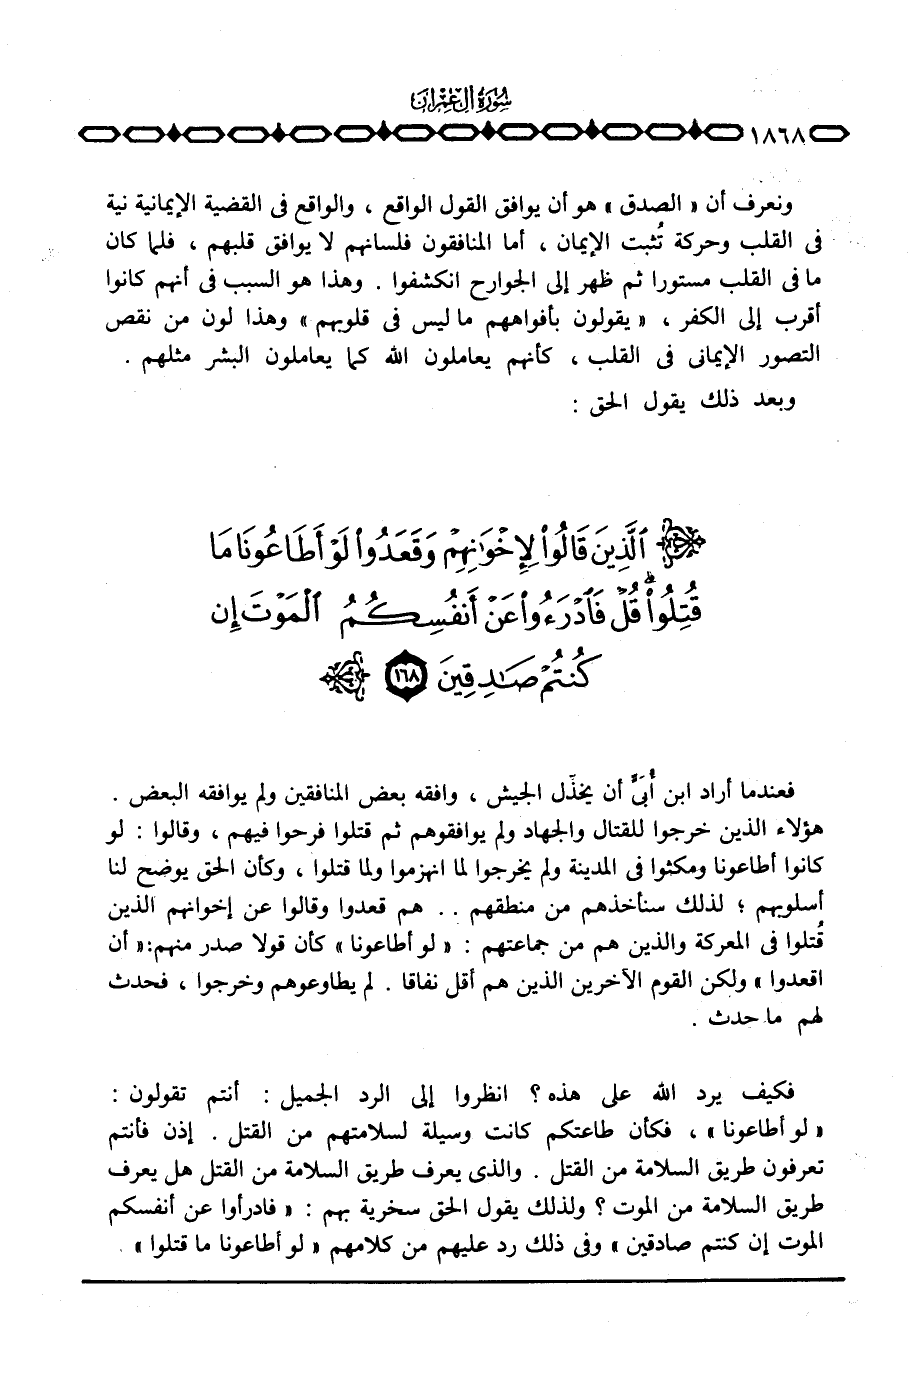 سُورَةُ آلِ عِمْرَانَ
١٨٦٨
ونعرف أن « الصدق » هو أن يوافق القول الواقع ، والواقع فى القضية الإيمانية نية
فى القلب وحركة تُثبت الإيمان ، أما المنافقون فلسانهم لا يوافق قلبهم ، فلما كان
ما فى القلب مستورا ثم ظهر إلى الجوارح انكشفوا . وهذا هو السبب فى أنهم كانوا
أقرب إلى الكفر ، « يقولون بأفواههم ما ليس فى قلوبهم » وهذا لون من نقص
التصور الإيمانى فى القلب ، كأنهم يعاملون الله كما يعاملون البشر مثلهم .
وبعد ذلك يقول الحق :
ٱلَّذِينَ قَالُوا۟ لِإِخْوَٰنِهِمْ وَقَعَدُوا۟ لَوْ أَطَاعُونَا مَا
قُتِلُوا۟ ۗ قُلْ فَٱدْرَءُوا۟ عَنْ أَنفُسِكُمُ ٱلْمَوْتَ إِن
كُنتُمْ صَٰدِقِينَ ١٦٨
فعندما أراد ابن أُبَىٍّ أن يخذّل الجيش ، وافقه بعض المنافقين ولم يوافقه البعض .
هؤلاء الذين خرجوا للقتال والجهاد ولم يوافقوهم ثم قتلوا فرحوا فيهم ، وقالوا : لو
كانوا أطاعونا ومكثوا فى المدينة ولم يخرجوا لما انهزموا ولما قتلوا ، وكأن الحق يوضح لنا
أسلوبهم ؛ لذلك سنأخذهم من منطقهم .. هم قعدوا وقالوا عن إخوانهم الذين
قُتلوا فى المعركة والذين هم من جماعتهم : « لو أطاعونا » كأن قولا صدر منهم:« أن
اقعدوا » ولكن القوم الآخرين الذين هم أقل نفاقا . لم يطاوعوهم وخرجوا ، فحدث
لهم ما حدث .
فكيف يرد الله على هذه ؟ انظروا إلى الرد الجميل : أنتم تقولون :
« لو أطاعونا » ، فكأن طاعتكم كانت وسيلة لسلامتهم من القتل . إذن فأنتم
تعرفون طريق السلامة من القتل . والذى يعرف طريق السلامة من القتل هل يعرف
طريق السلامة من الموت ؟ ولذلك يقول الحق سخرية بهم : « فادرأوا عن أنفسكم
الموت إن كنتم صادقين » وفى ذلك رد عليهم من كلامهم « لو أطاعونا ما قتلوا » .